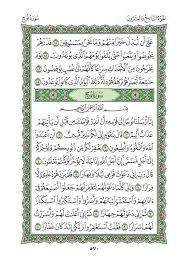 الجزء التاسع والعشرون سورة نوح
عَلَىٰ أَن نُّبَدِّلَ خَيْرًا مِّنْهُمْ وَمَا نَحْنُ بِمَسْبُوقِينَ ٤١ فَذَرْهُمْ
يَخُوضُوا وَيَلْعَبُوا حَتَّىٰ يُلَاقُوا يَوْمَهُمُ الَّذِي يُوعَدُونَ ٤٢ يَوْمَ يَخْرُجُونَ
مِنَ الْأَجْدَاثِ سِرَاعًا كَأَنَّهُمْ إِلَىٰ نُصُبٍ يُوفِضُونَ ٤٣ خَاشِعَةً
أَبْصَارُهُمْ تَرْهَقُهُمْ ذِلَّةٌ ذَٰلِكَ الْيَوْمُ الَّذِي كَانُوا يُوعَدُونَ ٤٤
سورة نوح
بِسْمِ اللَّهِ الرَّحْمَٰنِ الرَّحِيمِ
إِنَّا أَرْسَلْنَا نُوحًا إِلَىٰ قَوْمِهِ أَنْ أَنذِرْ قَوْمَكَ مِن قَبْلِ أَن يَأْتِيَهُمْ
عَذَابٌ أَلِيمٌ ١ قَالَ يَا قَوْمِ إِنِّي لَكُمْ نَذِيرٌ مُّبِينٌ ٢ أَنِ اعْبُدُوا اللَّهَ
وَاتَّقُوهُ وَأَطِيعُونِ ٣ يَغْفِرْ لَكُم مِّن ذُنُوبِكُمْ وَيُؤَخِّرْكُمْ
إِلَىٰ أَجَلٍ مُّسَمًّى إِنَّ أَجَلَ اللَّهِ إِذَا جَاءَ لَا يُؤَخَّرُ لَوْ كُنتُمْ تَعْلَمُونَ ٤
قَالَ رَبِّ إِنِّي دَعَوْتُ قَوْمِي لَيْلًا وَنَهَارًا ٥ فَلَمْ يَزِدْهُمْ دُعَائِي
إِلَّا فِرَارًا ٦ وَإِنِّي كُلَّمَا دَعَوْتُهُمْ لِتَغْفِرَ لَهُمْ جَعَلُوا أَصَابِعَهُمْ
فِي آذَانِهِمْ وَاسْتَغْشَوْا ثِيَابَهُمْ وَأَصَرُّوا وَاسْتَكْبَرُوا
اسْتِكْبَارًا ٧ ثُمَّ إِنِّي دَعَوْتُهُمْ جِهَارًا ٨ ثُمَّ إِنِّي أَعْلَنتُ
لَهُمْ وَأَسْرَرْتُ لَهُمْ إِسْرَارًا ٩ فَقُلْتُ اسْتَغْفِرُوا رَبَّكُمْ إِنَّهُ كَانَ غَفَّارًا ١٠
٥٧٠